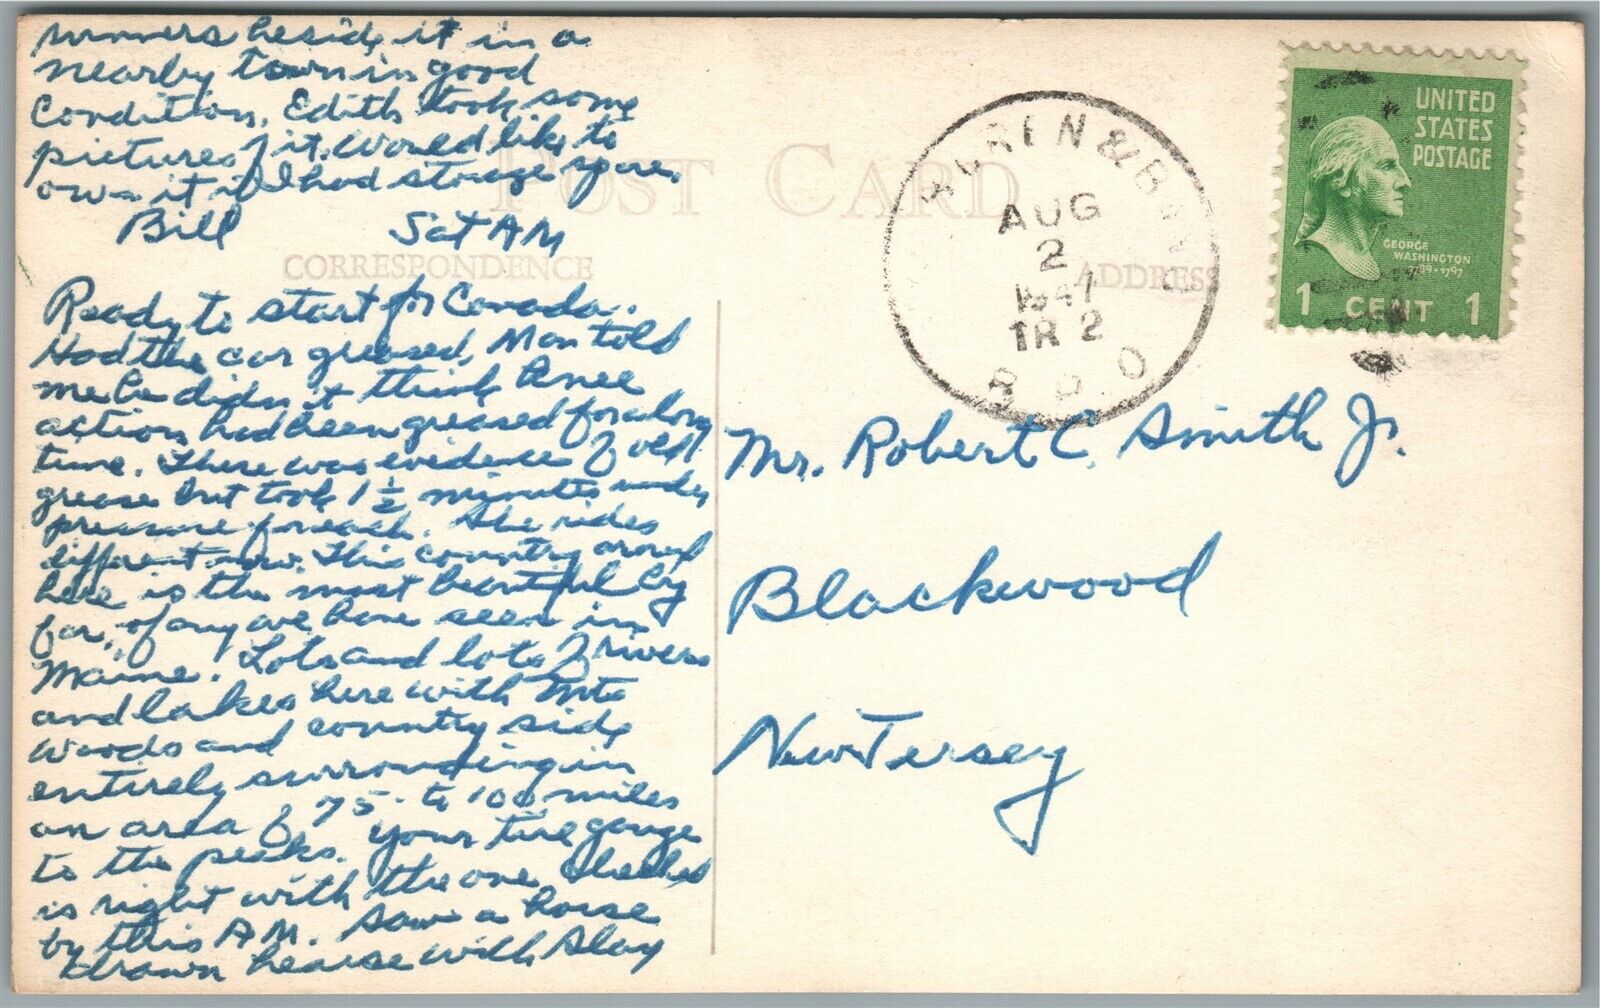 runners beside it in a
nearby town in good
Condition. Edith took some
pictures of it. Would like to
own it if I had storage space.
Bill Sat AM
POST CARD
CORRESPONDENCE
ADDRESS
Ready to start for Canada.
Had the car greased. Man told
me he didn't think knee
action had been greased for a long
time. There was evidence of old
grease but took 1 1/2 minutes under
pressure for each. She rides
different now. This country around
here is the most beautiful by
far, of any we have seen in
Maine. Lots and lots of rivers
and lakes here with Mts
woods and country side
entirely surrounding in
an area of 75 to 100 miles
to the peaks. Your tire gauge
is right with the one checked
by this AM. Saw a horse
drawn hearse with slay
& B
AUG
2
1947
TR 2
R.P.O
UNITED
STATES
POSTAGE
GEORGE
WASHINGTON
1789-1797
1 CENT 1
Mr. Robert C. Smith Jr.
Blackwood
New Jersey